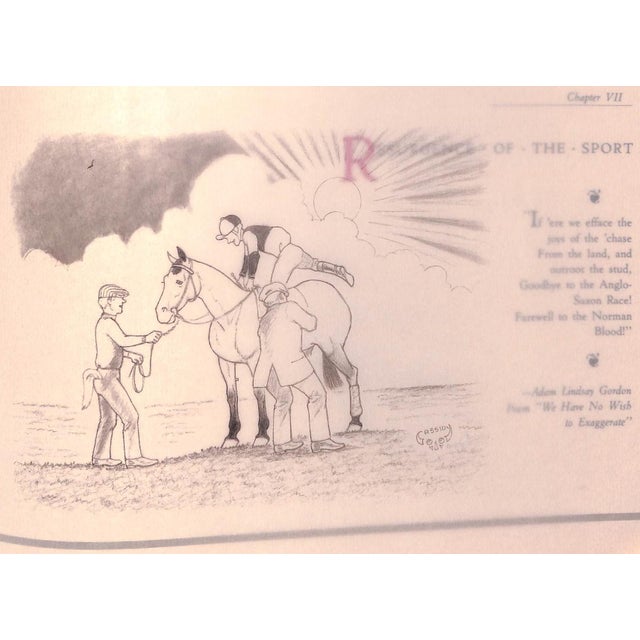 Chapter VII
RESURGENCE · OF · THE · SPORT
"If 'ere we efface the
joys of the 'chase
From the land, and
outroot the stud,
Goodbye to the Anglo-
Saxon Race!
Farewell to the Norman
Blood!"
—Adam Lindsay Gordon
From "We Have No Wish
to Exaggerate"
CASSIDY